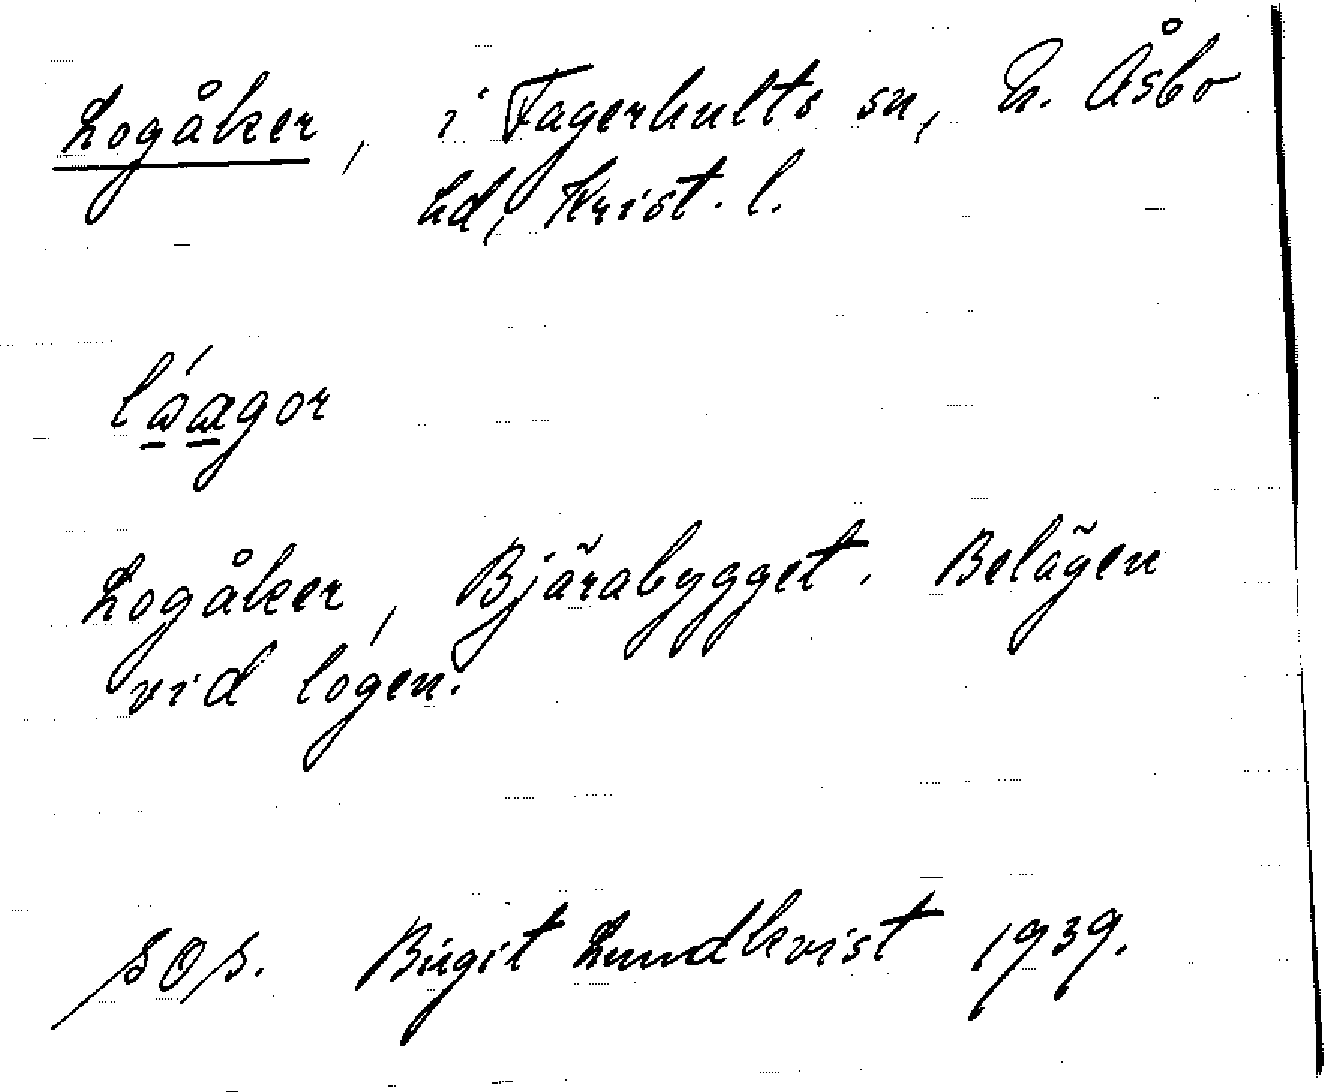 Logåker, i Fagerhults sn, N. Åsbo
hd, Krist. l.
Logåker, Bjärabygget. Belägen
vid logen.
SOS. Birgit Lundkvist 1939.